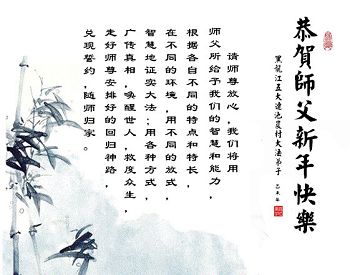 恭賀師父新年快樂
黑龍江五大連池農村大法弟子
请师尊放心，我们将用
师父所给予我们的智慧和能力，
根据各自不同的特点和特长，
在不同的环境，用不同的方式，
智慧地证实大法；用各种方式，
广传真相，唤醒世人，救度众生，
走好师尊安排好的回归神路，
兑现誓约，随师归家。